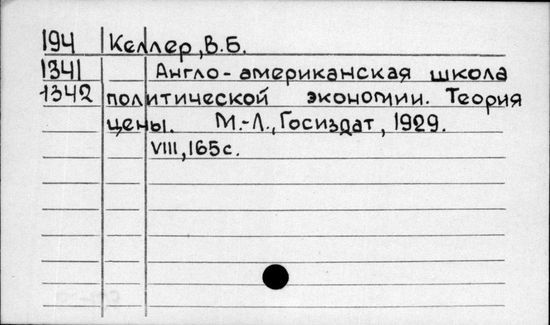 194 Келлер, В.Б.
1341 Англо-американская школа
1342 политической экономии. Теория
цены. М.-Л., Госиздат, 1929.
VIII, 165с.